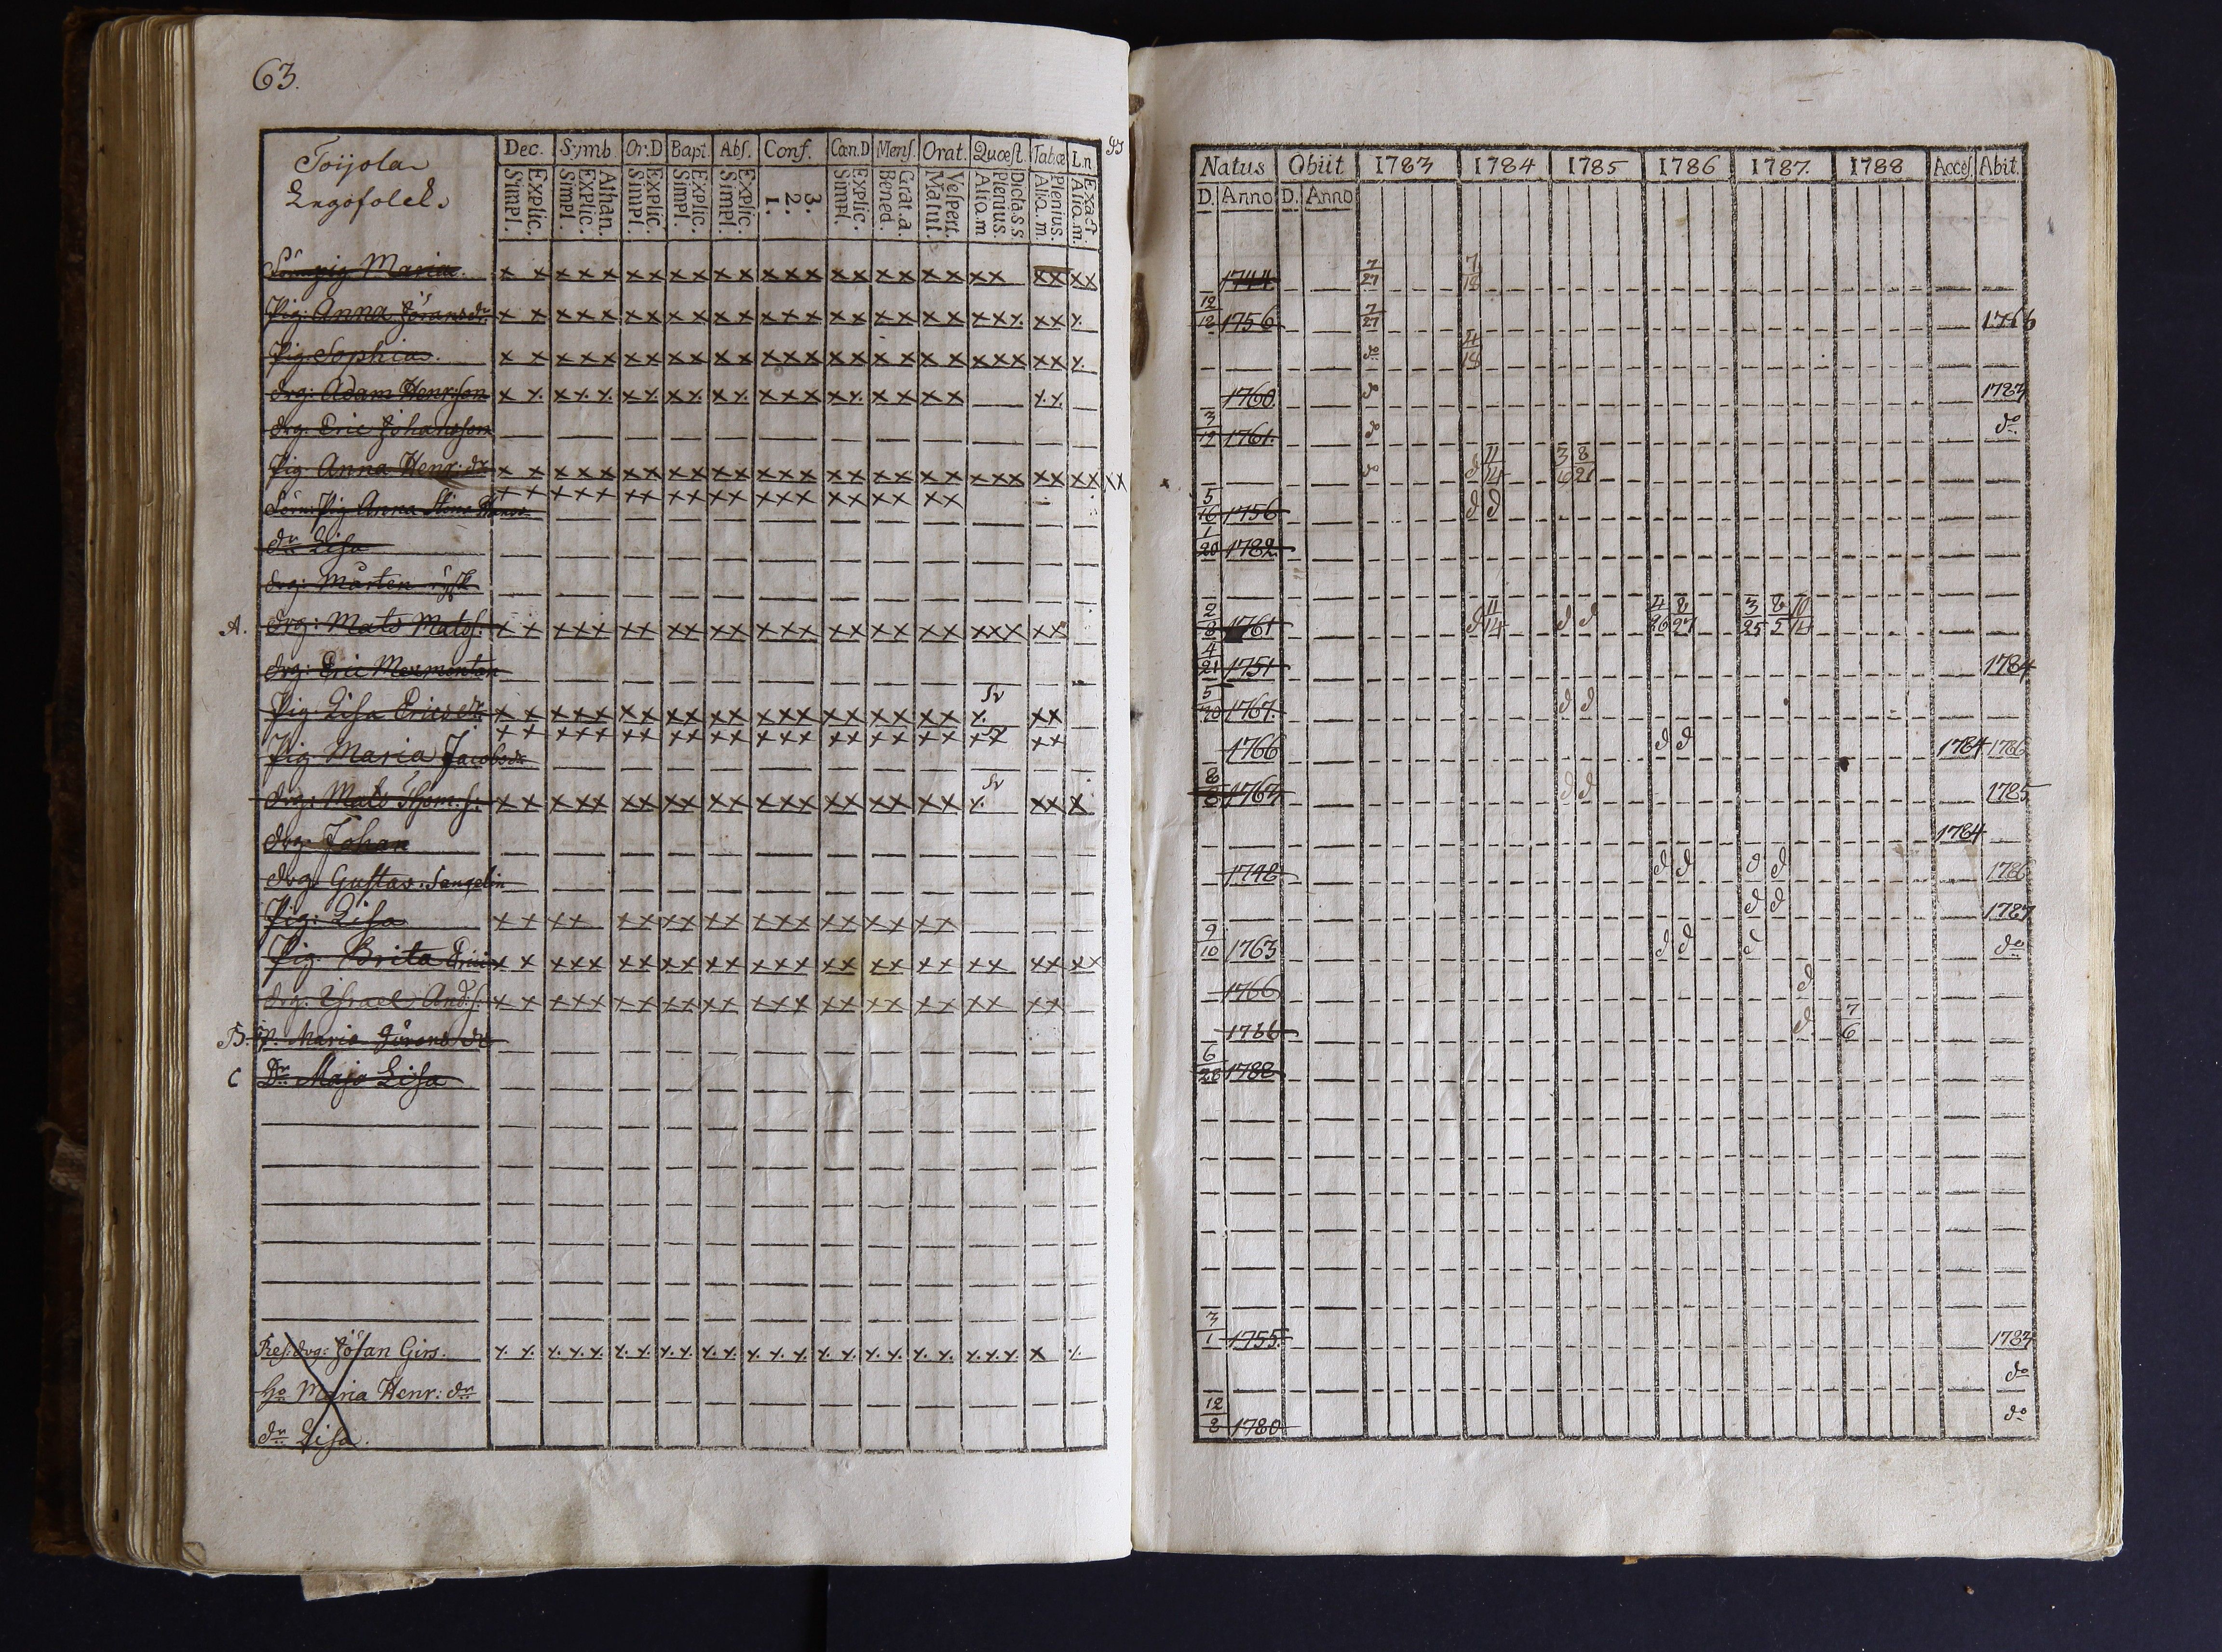 63.
Toijola
Dec. Symb. Or. D Bapt. Abs. Conf. Cœn. D Mens. Orat. Quœst. Tabœ Ln
Simpl. Explic. Simpl. Explic. Athan. Simpl. Explic. Simpl. Explic. Simpl. Explic. 1. 2. 3. Simpl. Explic. Bened. Grat. a. Matut. Vespert. Aliq. m Plenius. Dicta s s Aliq. m. Plenius. Aliq. m. Exact
Natus Obiit 1783 1784 1785 1786 1787. 1788 Acces. Abit.
D. Anno D. Anno
Maria. x x x x x x x x x x x x x x x x x x x x x x x x x x 1744 7/27 7/18
Pig: Anna Joransdr x x x x x x x x x x x x x x x x x x x x x x x x x x 12/12 1756 7/27 1786
Pig Sophia. x x x x x x x x x x x x x x x x x x x x x x x x x x do 4/18
drg: Adam Henr:son x x x x x x x x x x x x x x x x x x x x x x 1760 do 1783
drg. Eric Johansson 3/12 1761. do do
Pig: Anna Henr: dr x x x x x x x x x x x x x x x x x x x x x x x x x x x x do d 11/14 3/6 8/21
Pig Anna Stina x x x x x x x x x x x x x x x x x x x x 5/16 1756 d d
dr Lisa 1/20 1782
drg: Mårten
A. drg: Mats Mats s. x x x x x x x x x x x x x x x x x x x x x x x x x 2/8 1761 d 11/14 d d 4/26 8/27 3/25 8/5 10/14
drg: Eric Mermontan 4/21 1751 1784
Pig: Lisa Ericsdr x x x x x x x x x x x x x x x x x x x x x x x 5/20 1767. d d
Pig Maria Jacobsdr x x x x x x x x x x x x x x x x x x x x x x x x 1766 d d 1784 1786
drg: Mats Thom. s. x x x x x x x x x x x x x x x x x x x x x x x x 8/8 1763 d d 1785
drg Johan 1784
drg: Gustav Sangelin 1748 d d d d 1786
Pig: Lisa x x x x x x x x x x x x x x x x x x x d d 1787
Pig. Brita Erici x x x x x x x x x x x x x x x x x x x x x x x x x x 9/10 1763 d d d do
drg: Ysrael And. s. x x x x x x x x x x x x x x x x x x x x x x x x 1766 d
B. P. Maria Jörans dr 1766 d 7/6
C Dr Maja Lisa 6/28 1788
Res. drg: Johan Girs. x x x x x x x x x x x x x x x x x x x x x x x x x 3/1 1755. 1783
ho Maria Henr: dr do
dr Lisa. 12/8 1780 do